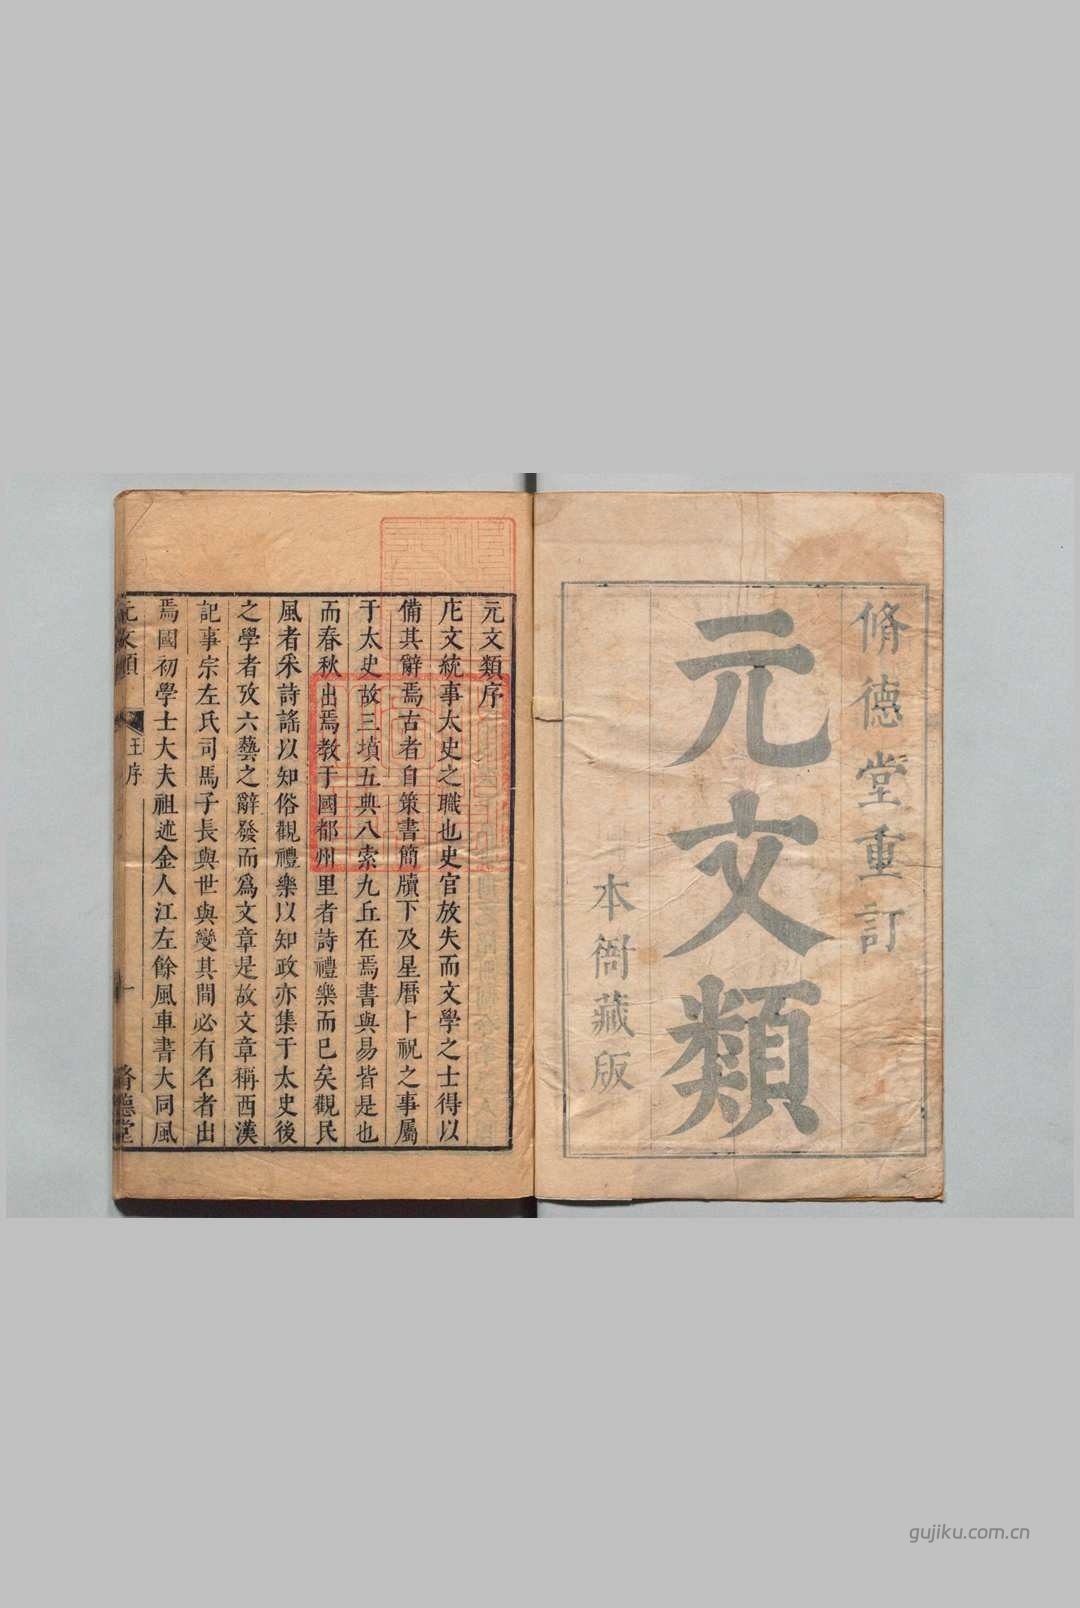 脩德堂重訂
元文類
本衙藏版
元文類序
庀文統事太史之職也史官放失而文學之士得以
備其辭焉古者自策書簡牘下及星曆卜祝之事屬
于太史故三墳五典八索九丘在焉書與易皆是也
而春秋出焉教于國都州里者詩禮樂而已矣觀民
風者采詩謠以知俗觀禮樂以知政亦集于太史後
之學者攷六藝之辭發而爲文章是故文章稱西漢
記事宗左氏司馬子長與世與變其間必有名者出
焉國初學士大夫祖述金人江左餘風車書大同風
元文類 王序 一 脩德堂
gujiku.com.cn